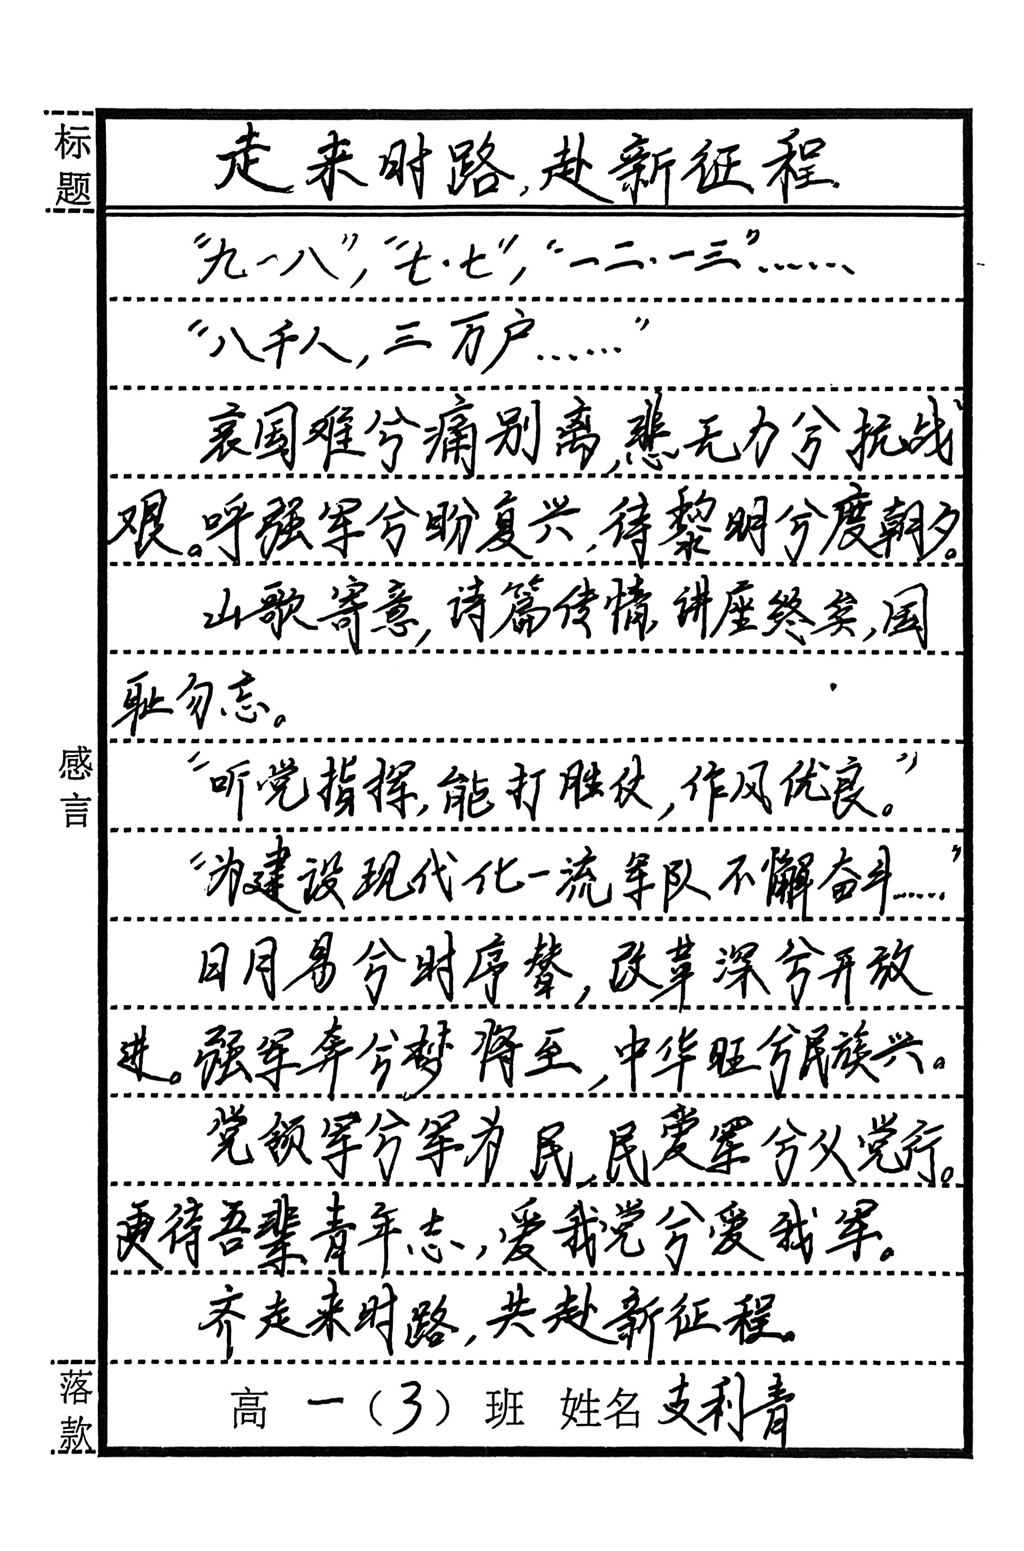 标题
走来时路，赴新征程.
“九一八”，“七·七”，“一二·一三”……
“八千人，三万户……”
哀国难兮痛别离，悲无力兮抗战
艰。呼强军兮盼复兴，待黎明兮度朝夕。
山歌寄意，诗篇传情，讲座终矣，国
耻勿忘。
感言
“听党指挥，能打胜仗，作风优良。”
“为建设现代化一流军队不懈奋斗……”
日月易兮时序替，改革深兮开放
进。强军奔兮梦将至，中华旺兮民族兴。
党领军兮军为民，民爱军兮从党行。
更待吾辈青年志，爱我党兮爱我军。
齐走来时路，共赴新征程。
落款
高一（3）班 姓名 支利青